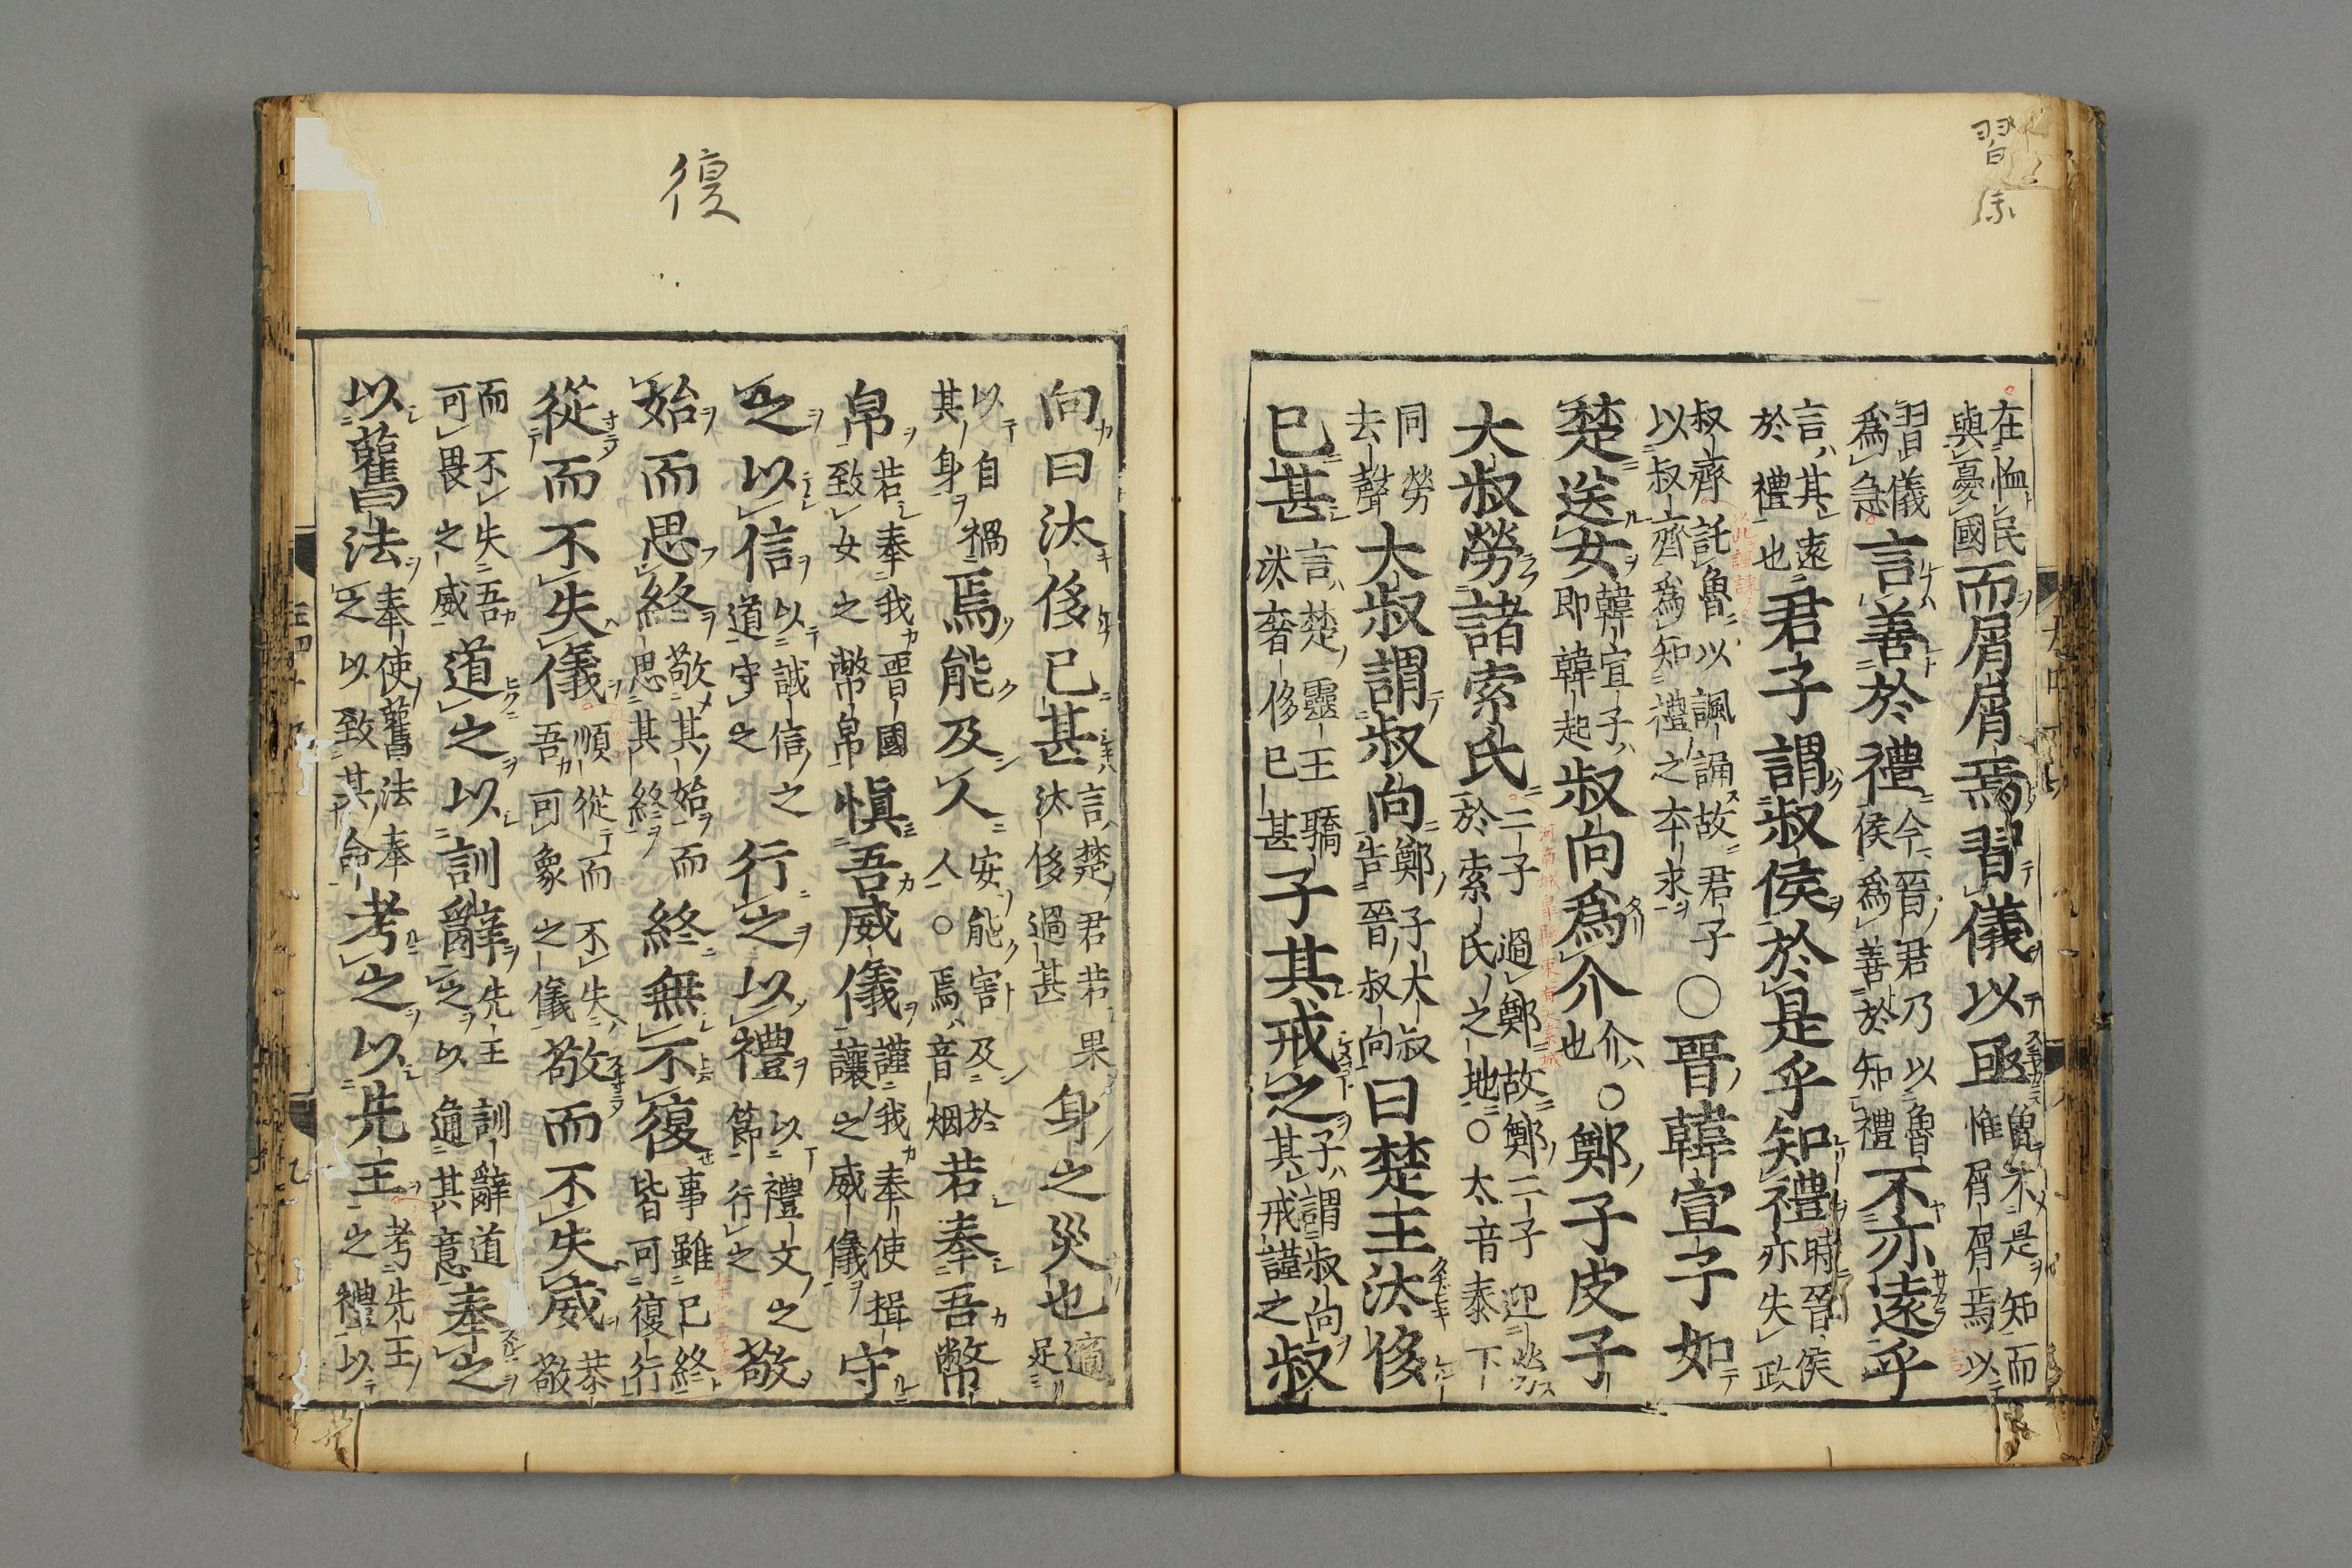 習
在恤民與憂國而屑屑焉習儀以亟曾不是知而惟屑屑焉以
習儀爲急言善於禮今晉君乃以魯侯爲善於知禮不亦遠乎
言其遠於禮也君子謂叔侯於是乎知禮時晉侯亦失政
叔齊託魯以諷誦故君子以叔齊爲知禮之本求○晉韓宣子如
楚送女韓宣子即韓起叔向爲介介也○鄭子皮子
大叔勞諸索氏二子過鄭故鄭二子迎勞於索氏之地○太音泰下
同勞去聲大叔謂叔向鄭子大叔告晉叔向曰楚王汰侈
已甚言楚靈王驕汰奢侈已甚子其戒之子謂叔向其戒謹之叔
復
向曰汰侈已甚言楚君若果汰侈過甚身之災也適足
以自禍其身焉能及人安能害及於人○焉音烟若奉吾幣
帛若奉我晉國致女之幣帛愼吾威儀謹我奉使揖讓之威儀守
之以信以誠信之道守之行之以禮以禮文之節行之敬
始而思終敬其始而思其終終無不復事雖已終皆可復行
從而不失儀順從而不失吾可象之儀敬而不失威恭敬
而不失吾可畏之威道之以訓辭先王訓辭之以道意通其奉之
以舊法奉使舊法之以致其命考之以先王考先王之禮以